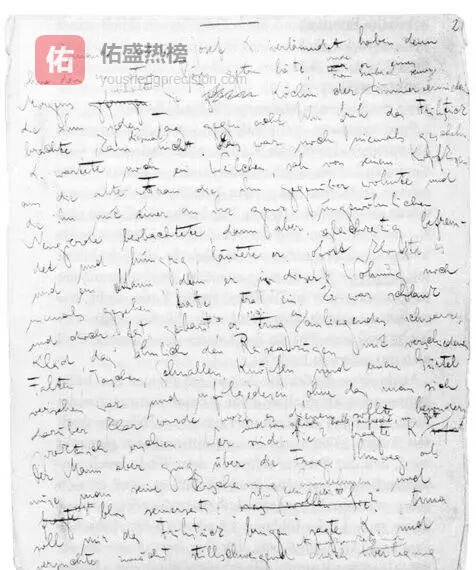 2
佑
佑盛热榜
youshengprecision.com
Josef K. verläumdet haben, denn
Morgens Köchin der Zimmervermieterin
die ihm jeden Tag gegen acht Uhr früh das Frühstück
brachte kam diesmal nicht. Das war noch niemals geschehn
K. wartete noch ein Weilchen, sah von seinem Kopfkissen
aus die alte Frau die ihm gegenüber wohnte und
die ihn mit einer an ihr ganz ungewöhnlichen
Neugierde beobachtete dann aber, gleichzeitig befrem-
det und hungrig, läutete er. Sofort klopfte es
und ein Mann, den er in dieser Wohnung noch
niemals gesehen hatte trat ein. Er war schlank
und doch fest gebaut er trug ein anliegendes schwarzes
Kleid das ähnlich den Reiseanzügen mit verschiedenen
Falten, Taschen, Schnallen, Knöpfen und einem Gürtel
versehen war und infolgedessen, ohne dass man sich
darüber klar wurde, wozu es dienen sollte besonders
praktisch erschien. Wer sind Sie? fragte K.
der Mann aber ging über die Frage hinweg, als
müsse man seine Erscheinung hinnehmen und
sagte bloss seinerseits:
soll mir das Frühstück bringen sagte K. und
versuchte zunächst stillschweigend durch